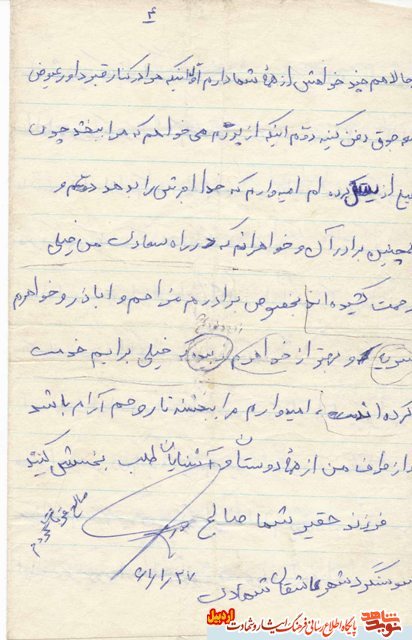 ۴
حالا هم چند خواهش از همهٔ شما دارم اولاً اینکه مرا در کنار قبر داور عیوض
دفن کنید دوم اینکه از پدرم می خواهم که مرا ببخشد چون
ام امیدوارم که خدا اجرش را بدهد و
همچنین برادران و خواهرانم که در راه من خیلی
زحمت کشیده اند بخصوص برادرم مزاحم و اباذر و خواهرم
و بهتر از خواهرم که خیلی برایم خدمت
کرده است، امیدوارم مرا ببخشند تا روحم آرام باشد
از طرف من از همهٔ دوستان و آشنایان طلب بخشش کنید
فرزند حقیر شما صالح
۶۱/۱/۲۷
سوسنگرد شهر عاشقان شهادت
نوید شاهد
پایگاه اطلاع رسانی فرهنگ ایثار و شهادت
اردبیل